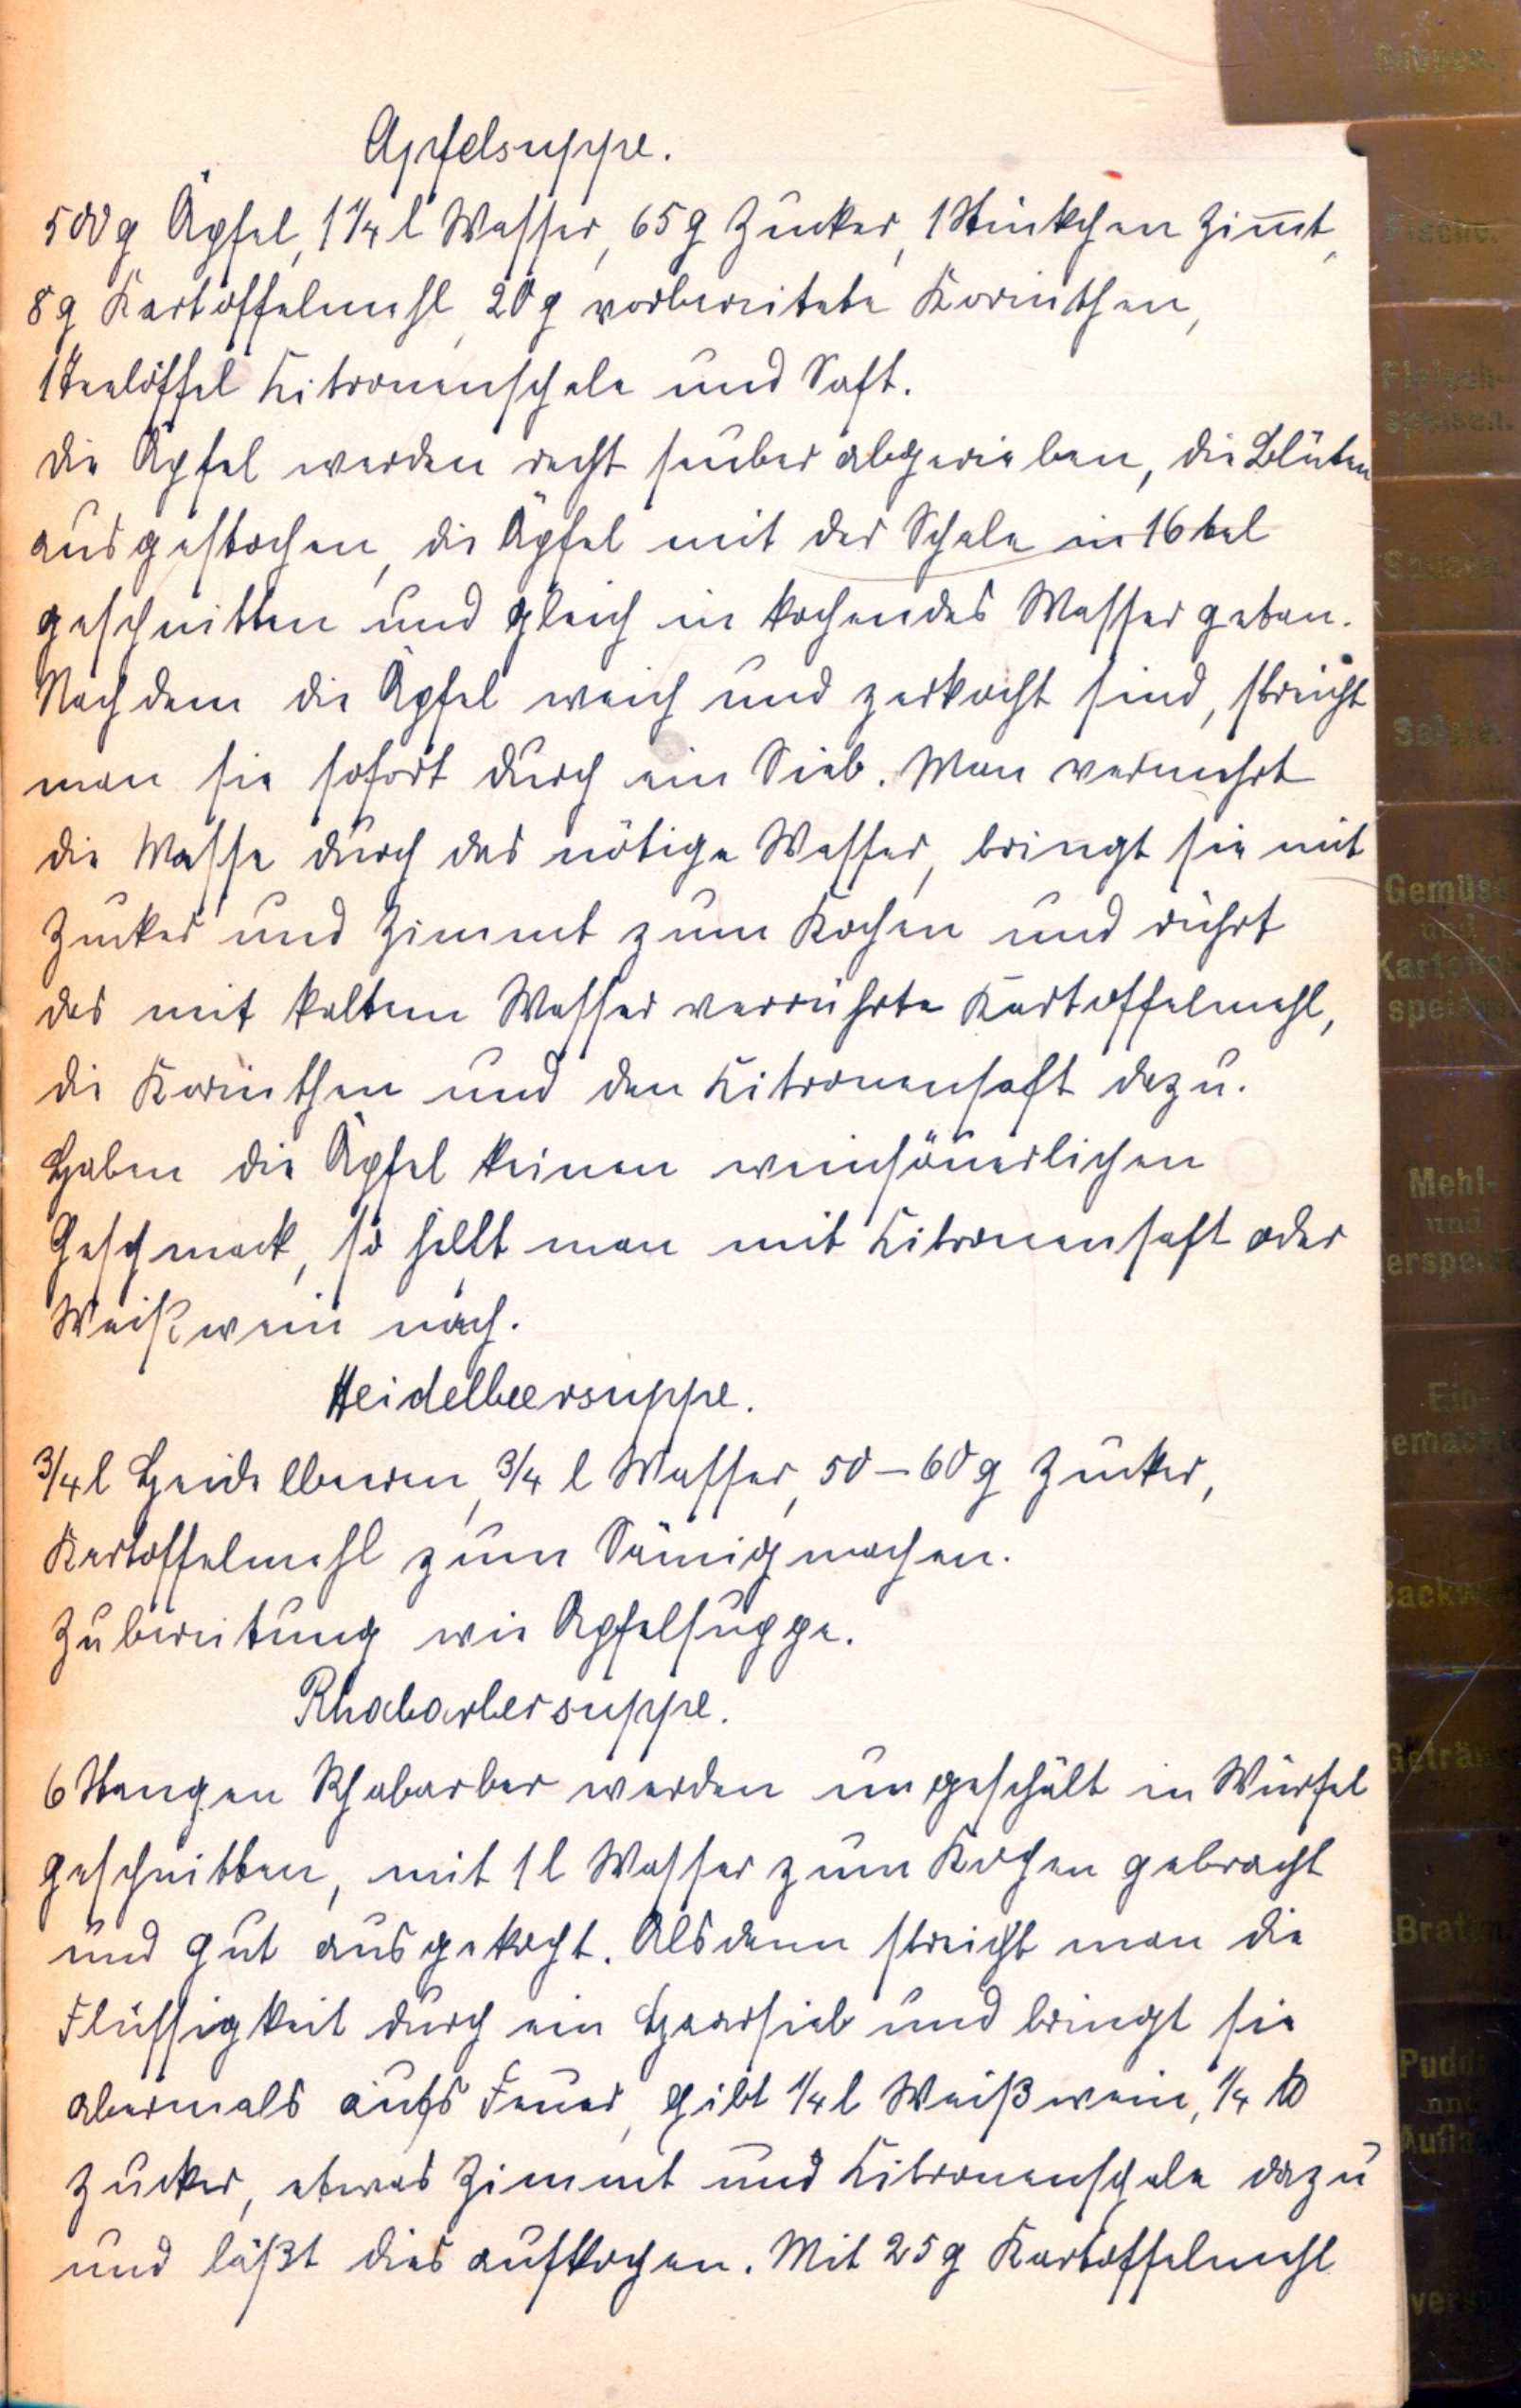 Apfelsuppe.
500 g Äpfel, 1 1/4 l Wasser, 65 g Zucker, 1 Stückchen Zimt,
8 g Kartoffelmehl, 20 g vorbereitete Korinthen,
1 Teelöffel Zitronenschale und Saft.
Die Äpfel werden recht sauber abgerieben, die Blüten
ausgestochen, die Äpfel mit der Schale in 16 tel
geschnitten und gleich in kochendes Wasser geben.
Nachdem die Äpfel weich und zerkocht sind, streicht
man sie sofort durch ein Sieb. Man vermehrt
die Masse durch das nötige Wasser, bringt sie mit
Zucker und Zimmt zum Kochen und rührt
das mit kaltem Wasser verrührte Kartoffelmehl,
die Korinthen und den Zitronensaft dazu.
Haben die Äpfel keinen weinsäuerlichen
Geschmack, so hilft man mit Zitronensaft oder
Weißwein nach.
Heidelbeersuppe.
3/4 l Heidelbeeren, 3/4 l Wasser, 50 – 60 g Zucker,
Kartoffelmehl zum Sämigmachen.
Zubereitung wie Apfelsuppe.
Rhabarbersuppe.
6 Stangen Rhabarber werden ungeschält in Würfel
geschnitten, mit 1 l Wasser zum Kochen gebracht
und gut ausgekocht. Alsdann streicht man die
Flüssigkeit durch ein Haarsieb und bringt sie
abermals aufs Feuer, gibt 1/4 l Weißwein, 1/4 ℔
Zucker, etwas Zimmt und Zitronenschale dazu
und läßt dies aufkochen. Mit 25 g Kartoffelmehl
Suppen.
Fische.
Fleisch-
speisen.
Saucen.
Salate.
Gemüse
und
Kartoffel
speisen
Mehl-
und
erspeis
Ein-
gemach
Backw
Geträn
Braten.
Pudd
und
Aufla
vers